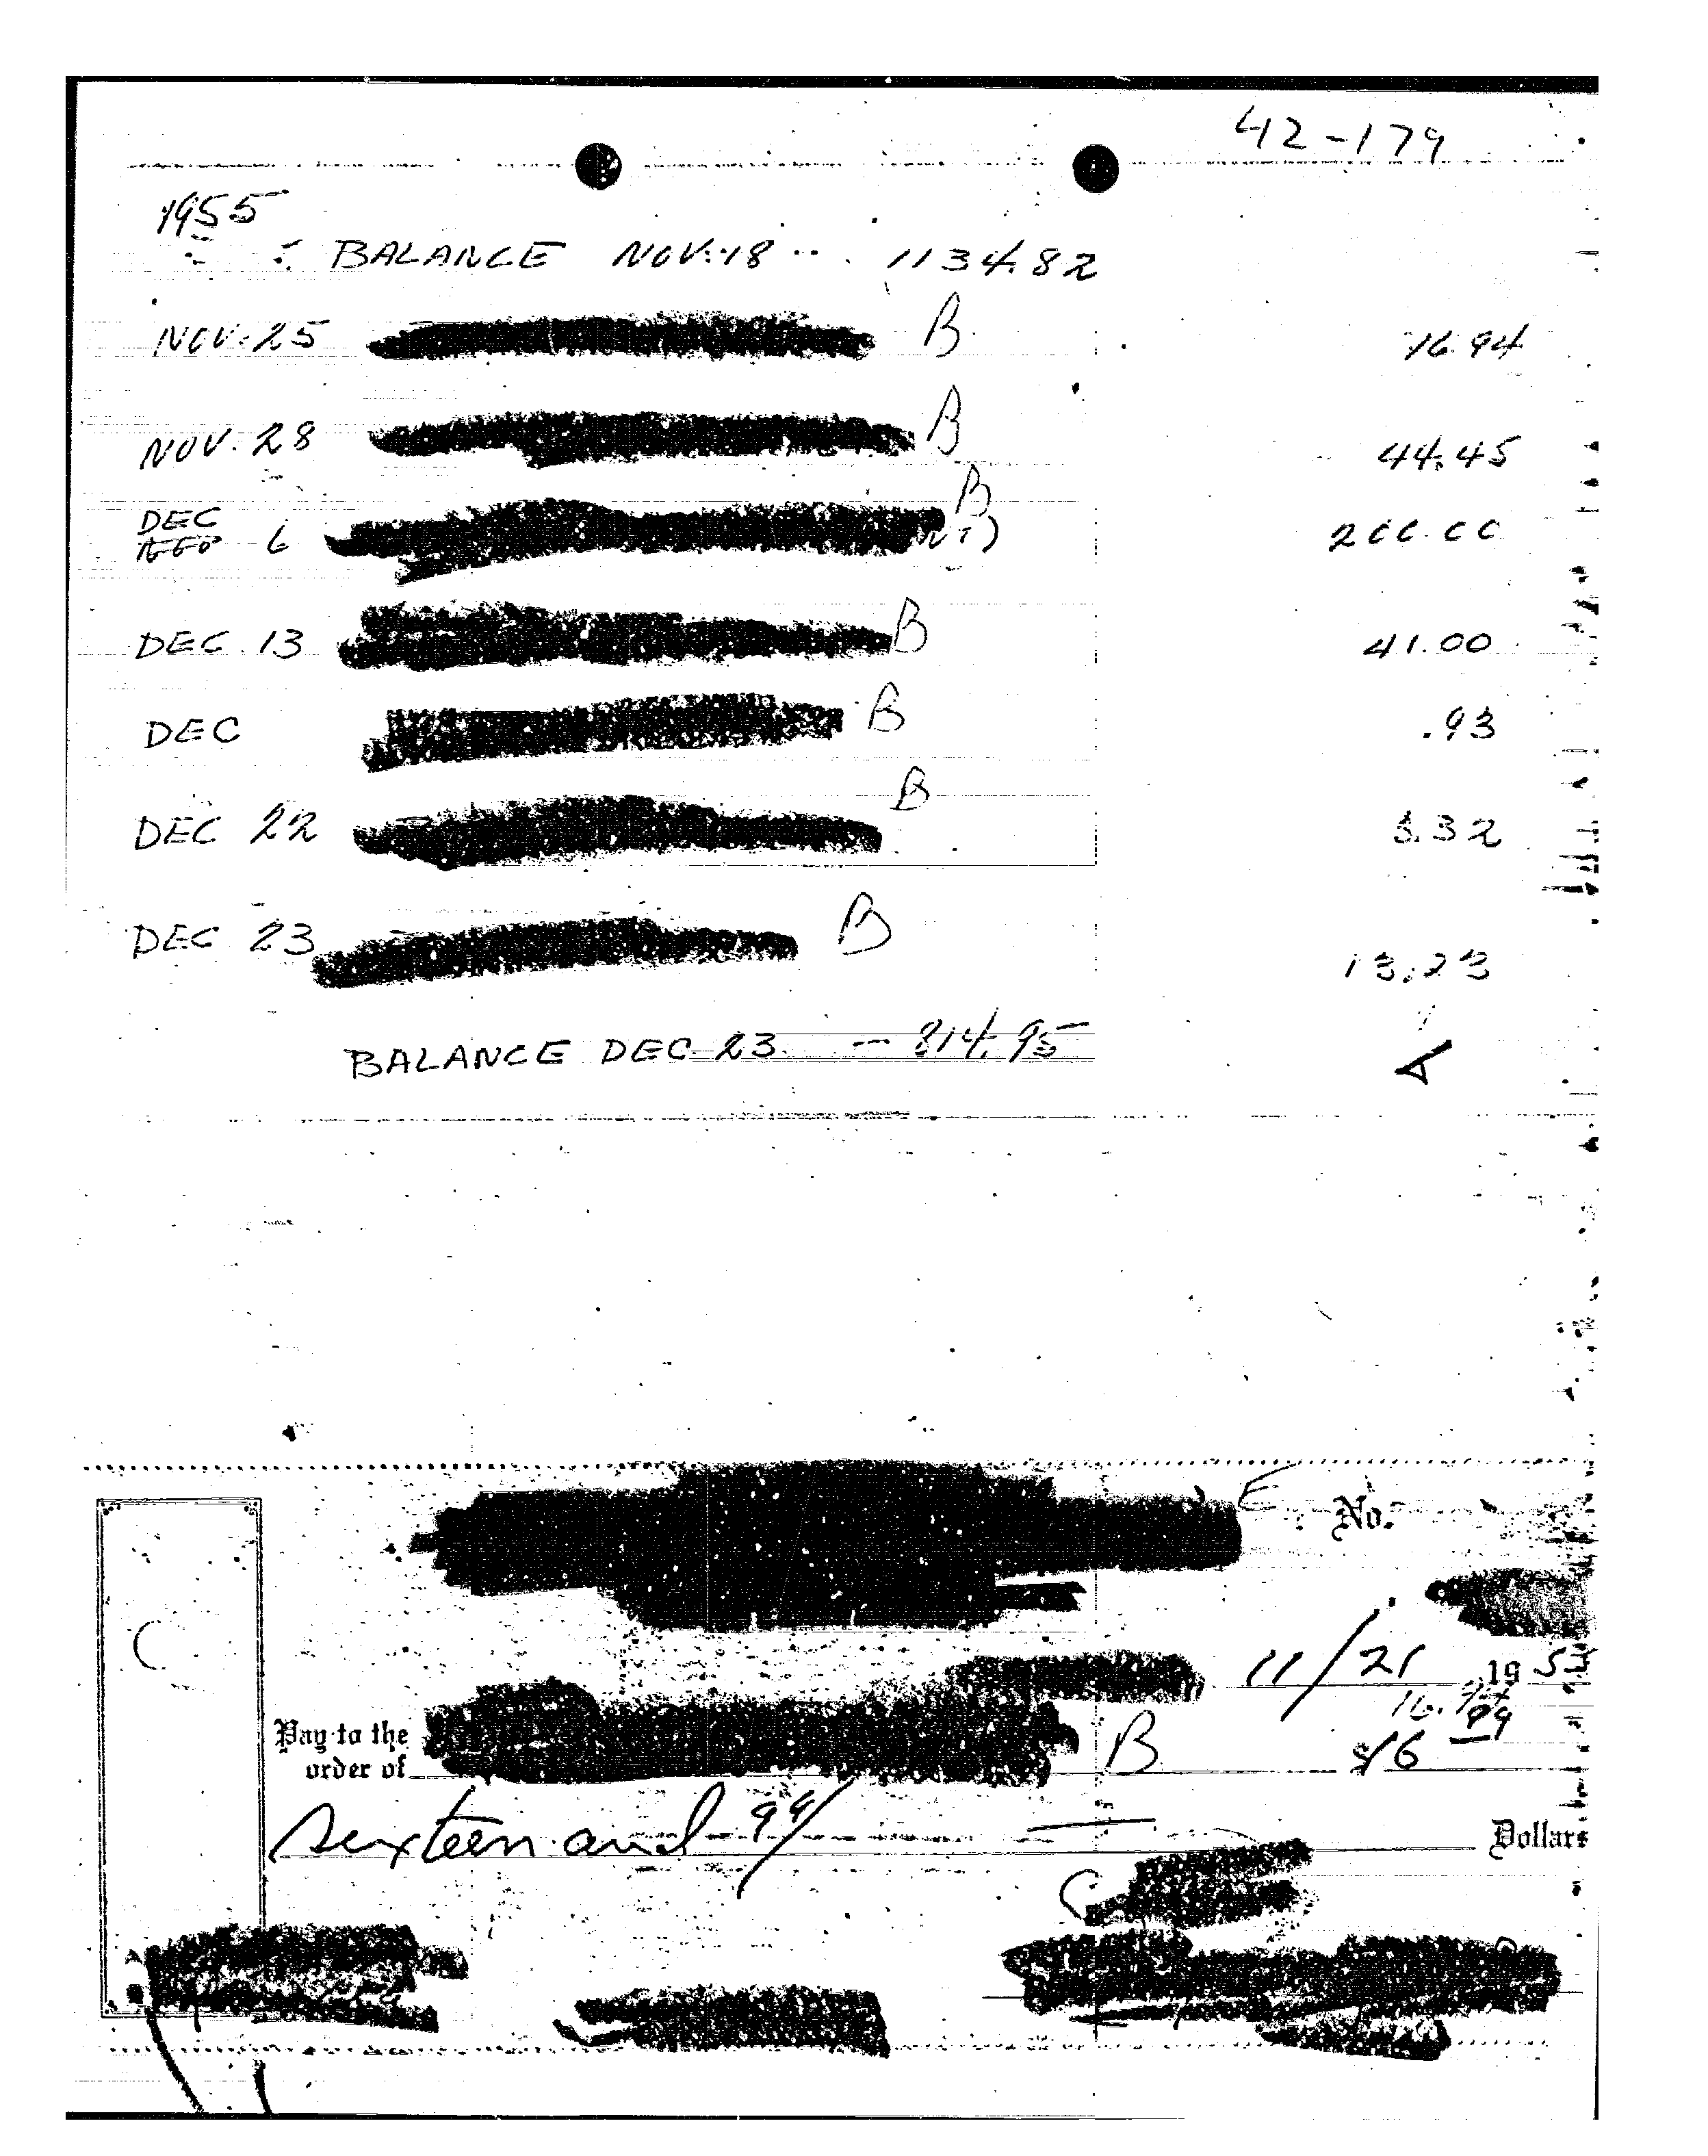 42-179
1955
BALANCE NOV. 18 -- 1134.82
NOV. 25 B 16.94
NOV. 28 B 44.45
DEC 6 B 200.00
DEC 13 B 41.00
DEC B .93
DEC 22 B 3.32
DEC 23 B 13.23
BALANCE DEC. 23 -- 814.95
E No.
11/21 1955
16.94
Pay to the
order of B $16
Sixteen and 94/
Dollars
C